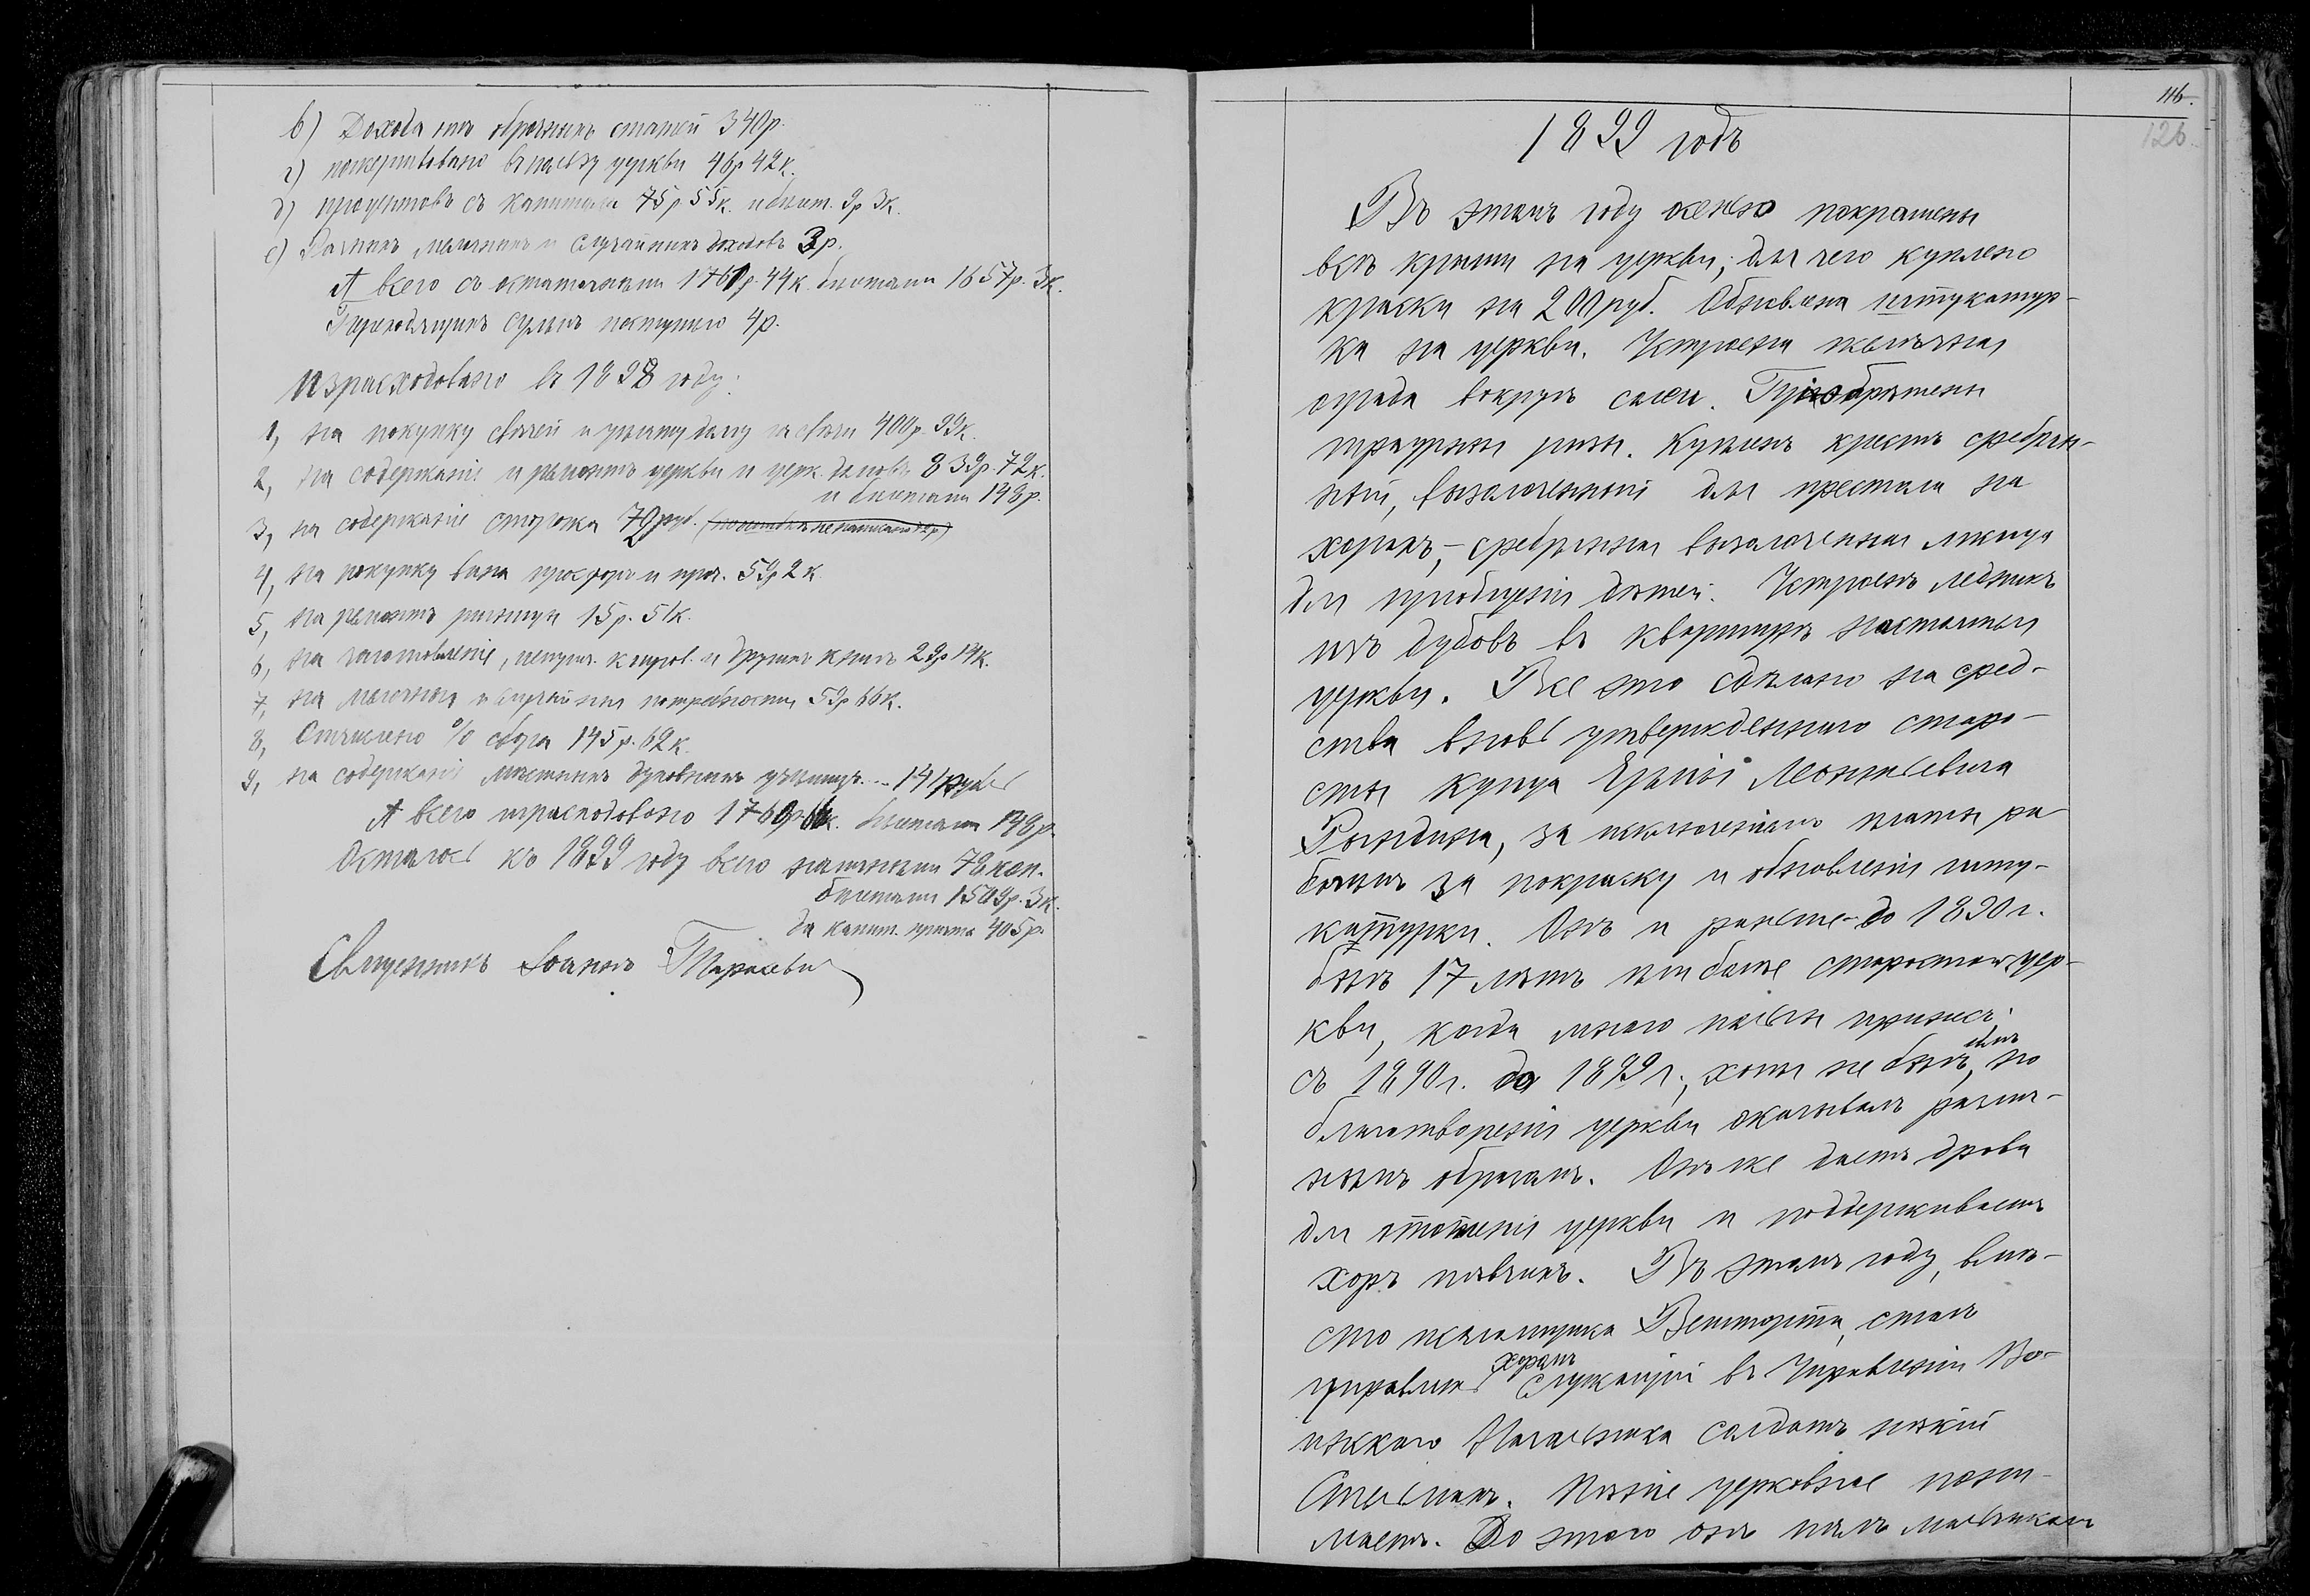 в) Дохода отъ оброчныхъ статей 340р.
г) пожертвовано въ пользу церкви 46р 42к.
д) процентовъ съ капитала 75р 55к. и билет. 9р 3к.
е) Разныхъ мелочныхъ и случайныхъ доходовъ 3р.
А всего съ остаточными 1761р. 44к. билетами 1657р. 3к.
Переходящихъ суммъ поступило 4р.
Израсходовано въ 1898 году:
1, на покупку свѣчей и уплату долгу за свѣчи 400р. 99к.
2, на содержаніе и ремонтъ церкви и церк. домовъ 839р. 72к.
и билетами 148р.
3, на содержаніе сторожа 79руб.
4, на покупку вина просфоръ и проч. 59р 2к.
5, на ремонтъ ризницы 15р. 51к.
6, на заготовленіе, и другихъ книгъ 29р 14к.
7, на мелочныя и случайныя потребности 59р 66к.
8, Отчислено % сбора 145р. 62к.
9, на содержаніе мѣстныхъ духовныхъ училищъ... 141рубль
А всего израсходовано 1760р 66к. билетами 148р.
Осталось къ 1899 году всего наличными 78 коп.
билетами 1509р. 3к.
да капит. причта 405р.
Священникъ Іоаннъ Тарасевич
116.
126
1899 годъ
Въ этомъ году осенью покрашены
всѣ крыши на церкви; для чего куплено
краски на 200 руб. Обновлена штукатур-
ка на церкви. Устроена желѣзная
ограда вокругъ сада. Пріобрѣтены
траурныя ризы. Купленъ крестъ сребрян-
ный, вызолоченный для престола на
хорахъ, – сребрянная вызолоченная лжица
для пріобщенія дѣтей. Устроенъ ледникъ
изъ дубовъ въ квартирѣ настоятеля
церкви. Все это сдѣлано на сред-
ства вновь утвержденнаго старо-
сты купца Леонтьевича
Рындина, за исключеніемъ платы ра-
бочимъ за покраску и обновленія шту-
катурки. Онъ и раньше – до 1890 г.
былъ 17 лѣтъ или болѣе старостою цер-
кви, когда много пользы принесъ;
съ 1890 г. до 1899 г., хотя не былъ имъ, но
благотворенія церкви оказывалъ различ-
нымъ образомъ. Онъ же даетъ дрова
для отопленія церкви и поддерживаетъ
хоръ пѣвчихъ. Въ этомъ году, вмѣ-
сто псаломщика сталъ
управлять хоромъ служащій въ Управленіи Во-
инскаго Начальника солдатъ нѣкій
Пѣніе церковное пони-
маетъ. До этого онъ пѣлъ мальчикомъ